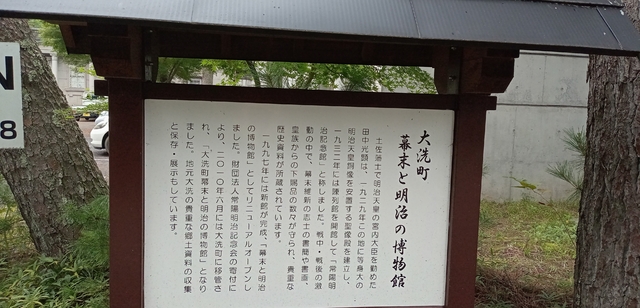 大洗町
幕末と明治の博物館
土佐藩士で明治天皇の宮内大臣を勤めた
田中光顕は、一九二九年この地に等身大の
明治天皇御像を安置する聖像殿を建立し、
一九三一年には陳列館を開館して「常陽明
治記念館」と称しました。戦中・戦後の激
動の中で、幕末維新の志士の書簡や書画、
皇族からの下賜品の数々が守られ、貴重な
歴史資料が所蔵されています。
一九九七年には新館が完成「幕末と明治
の博物館」としてリニューアルオープンし
ました。財団法人常陽明治記念会の寄付に
より、二〇一〇年六月には大洗町に移管さ
れ、「大洗町幕末と明治の博物館」となり
ました。地元大洗の貴重な郷土資料の収集
と保存・展示もしています。
N
8